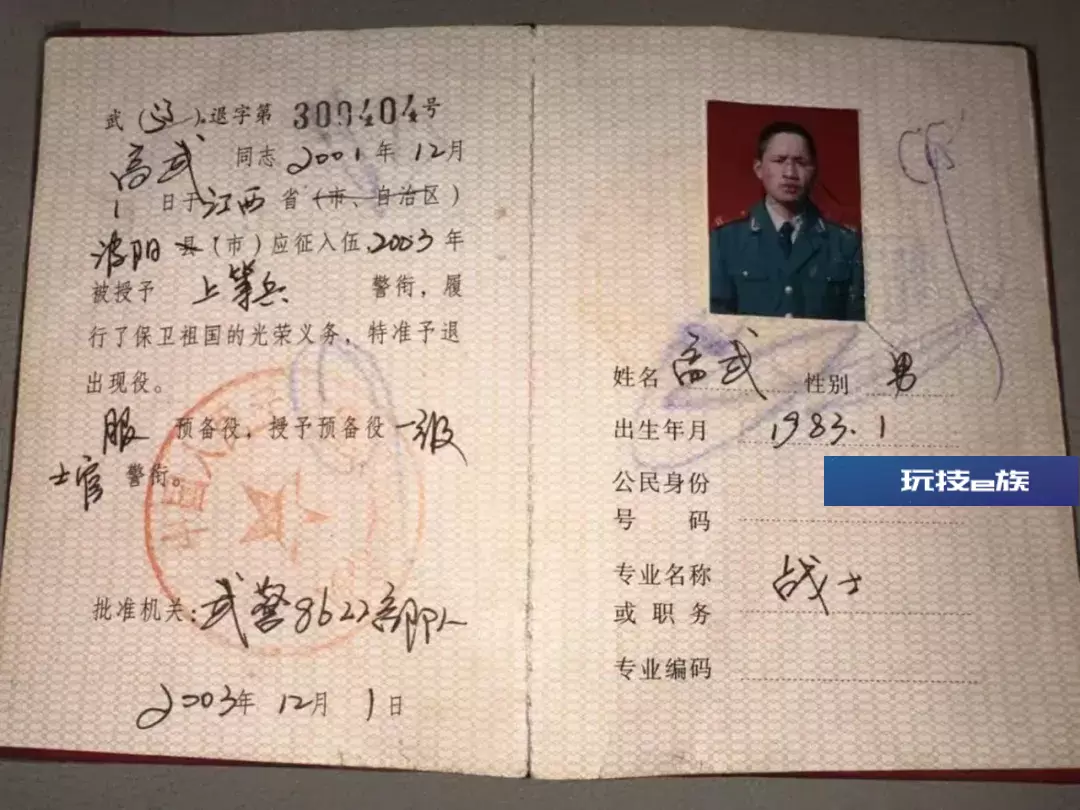 武（辽）退字第 300404号
高武 同志 2001年 12月
1 日于江西 省（市、自治区）
波阳 县（市）应征入伍 2003年
被授予 上等兵 警衔，履
行了保卫祖国的光荣义务，特准予退
出现役。
服 预备役，授予预备役 一级
士官 警衔。
批准机关：武警8622部队
2003年 12月 1日
姓名 高武 性别 男
出生年月 1983.1
公民身份
号 码
专业名称 战士
或 职 务
专业编码
玩技e族